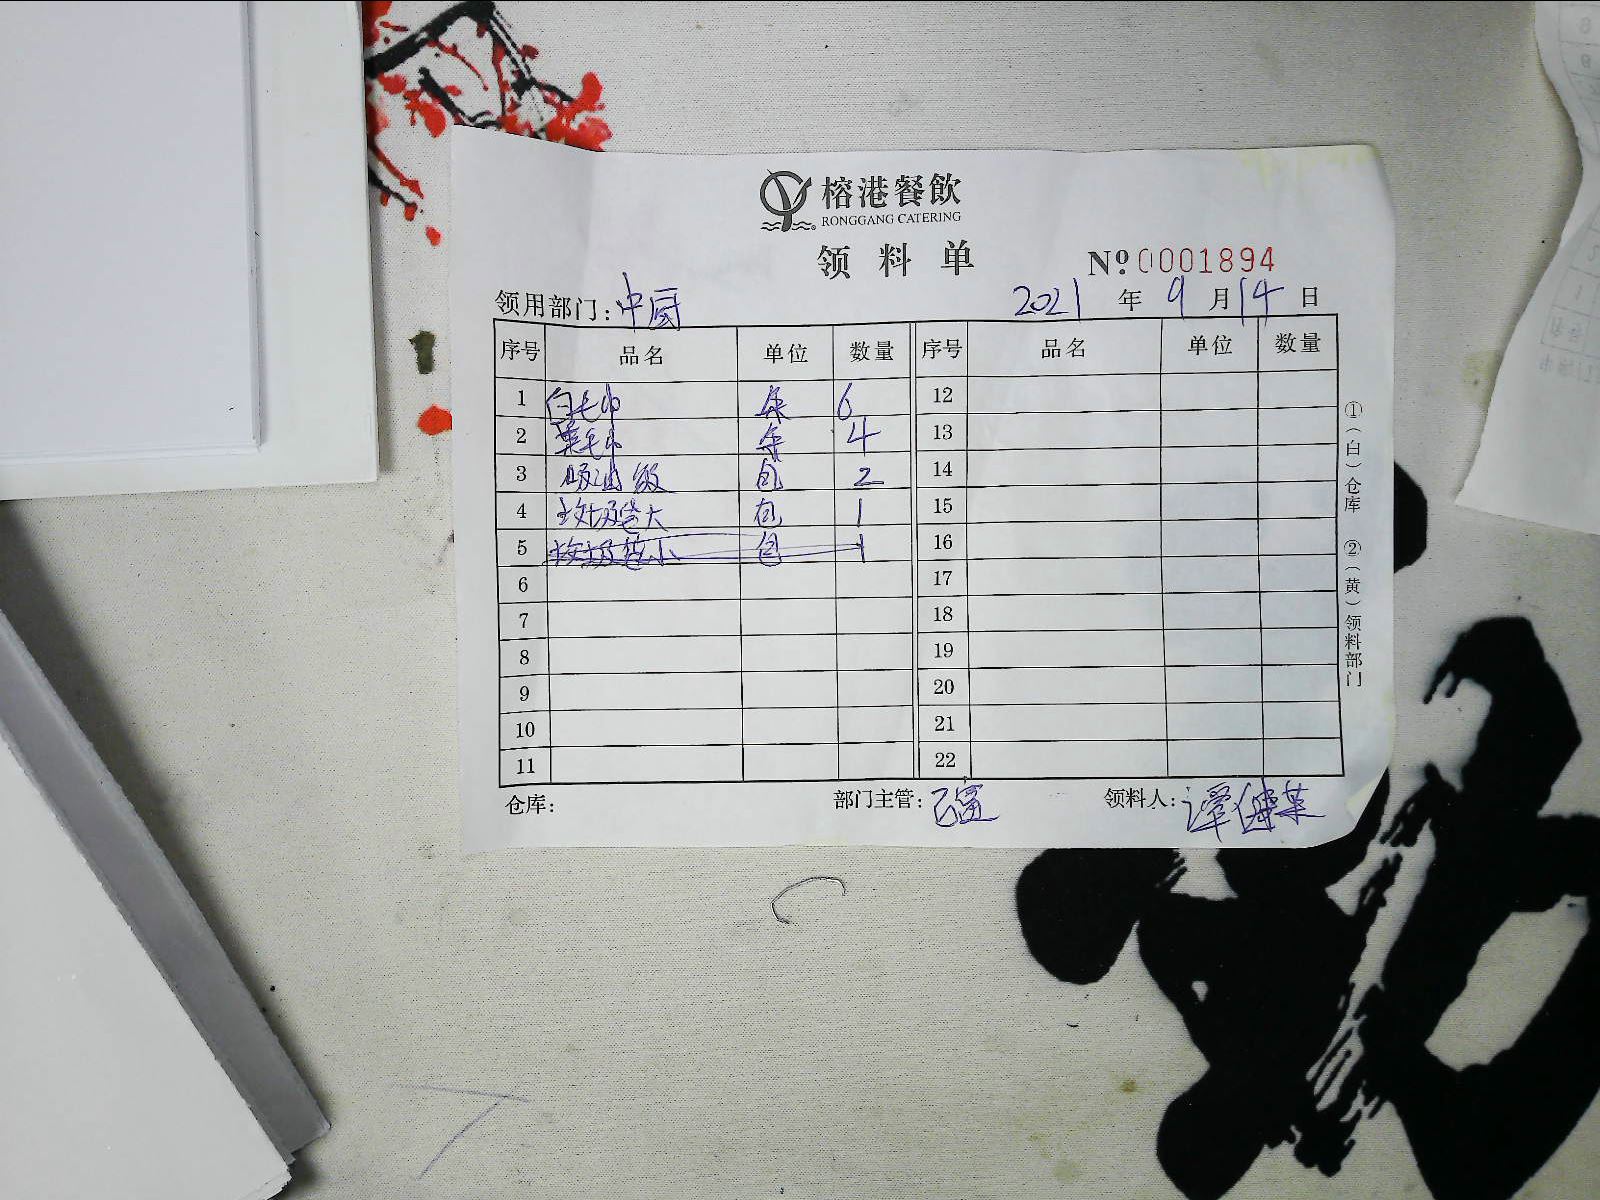 榕港餐飲
RONGGANG CATERING
领料单
№ 0001894
领用部门: 中厨 2021 年 9 月 14 日
序号 品名 单位 数量 序号 品名 单位 数量
1 白毛巾 条 6 12
2 毛巾 条 4 13
3 吸油纸 包 2 14
4 垃圾袋大 包 1 15
5 垃圾袋小 包 1 16
6 17
7 18
8 19
9 20
10 21
11 22
仓库: 部门主管: 领料人: 谭健
①(白)仓库 ②(黄)领料部门